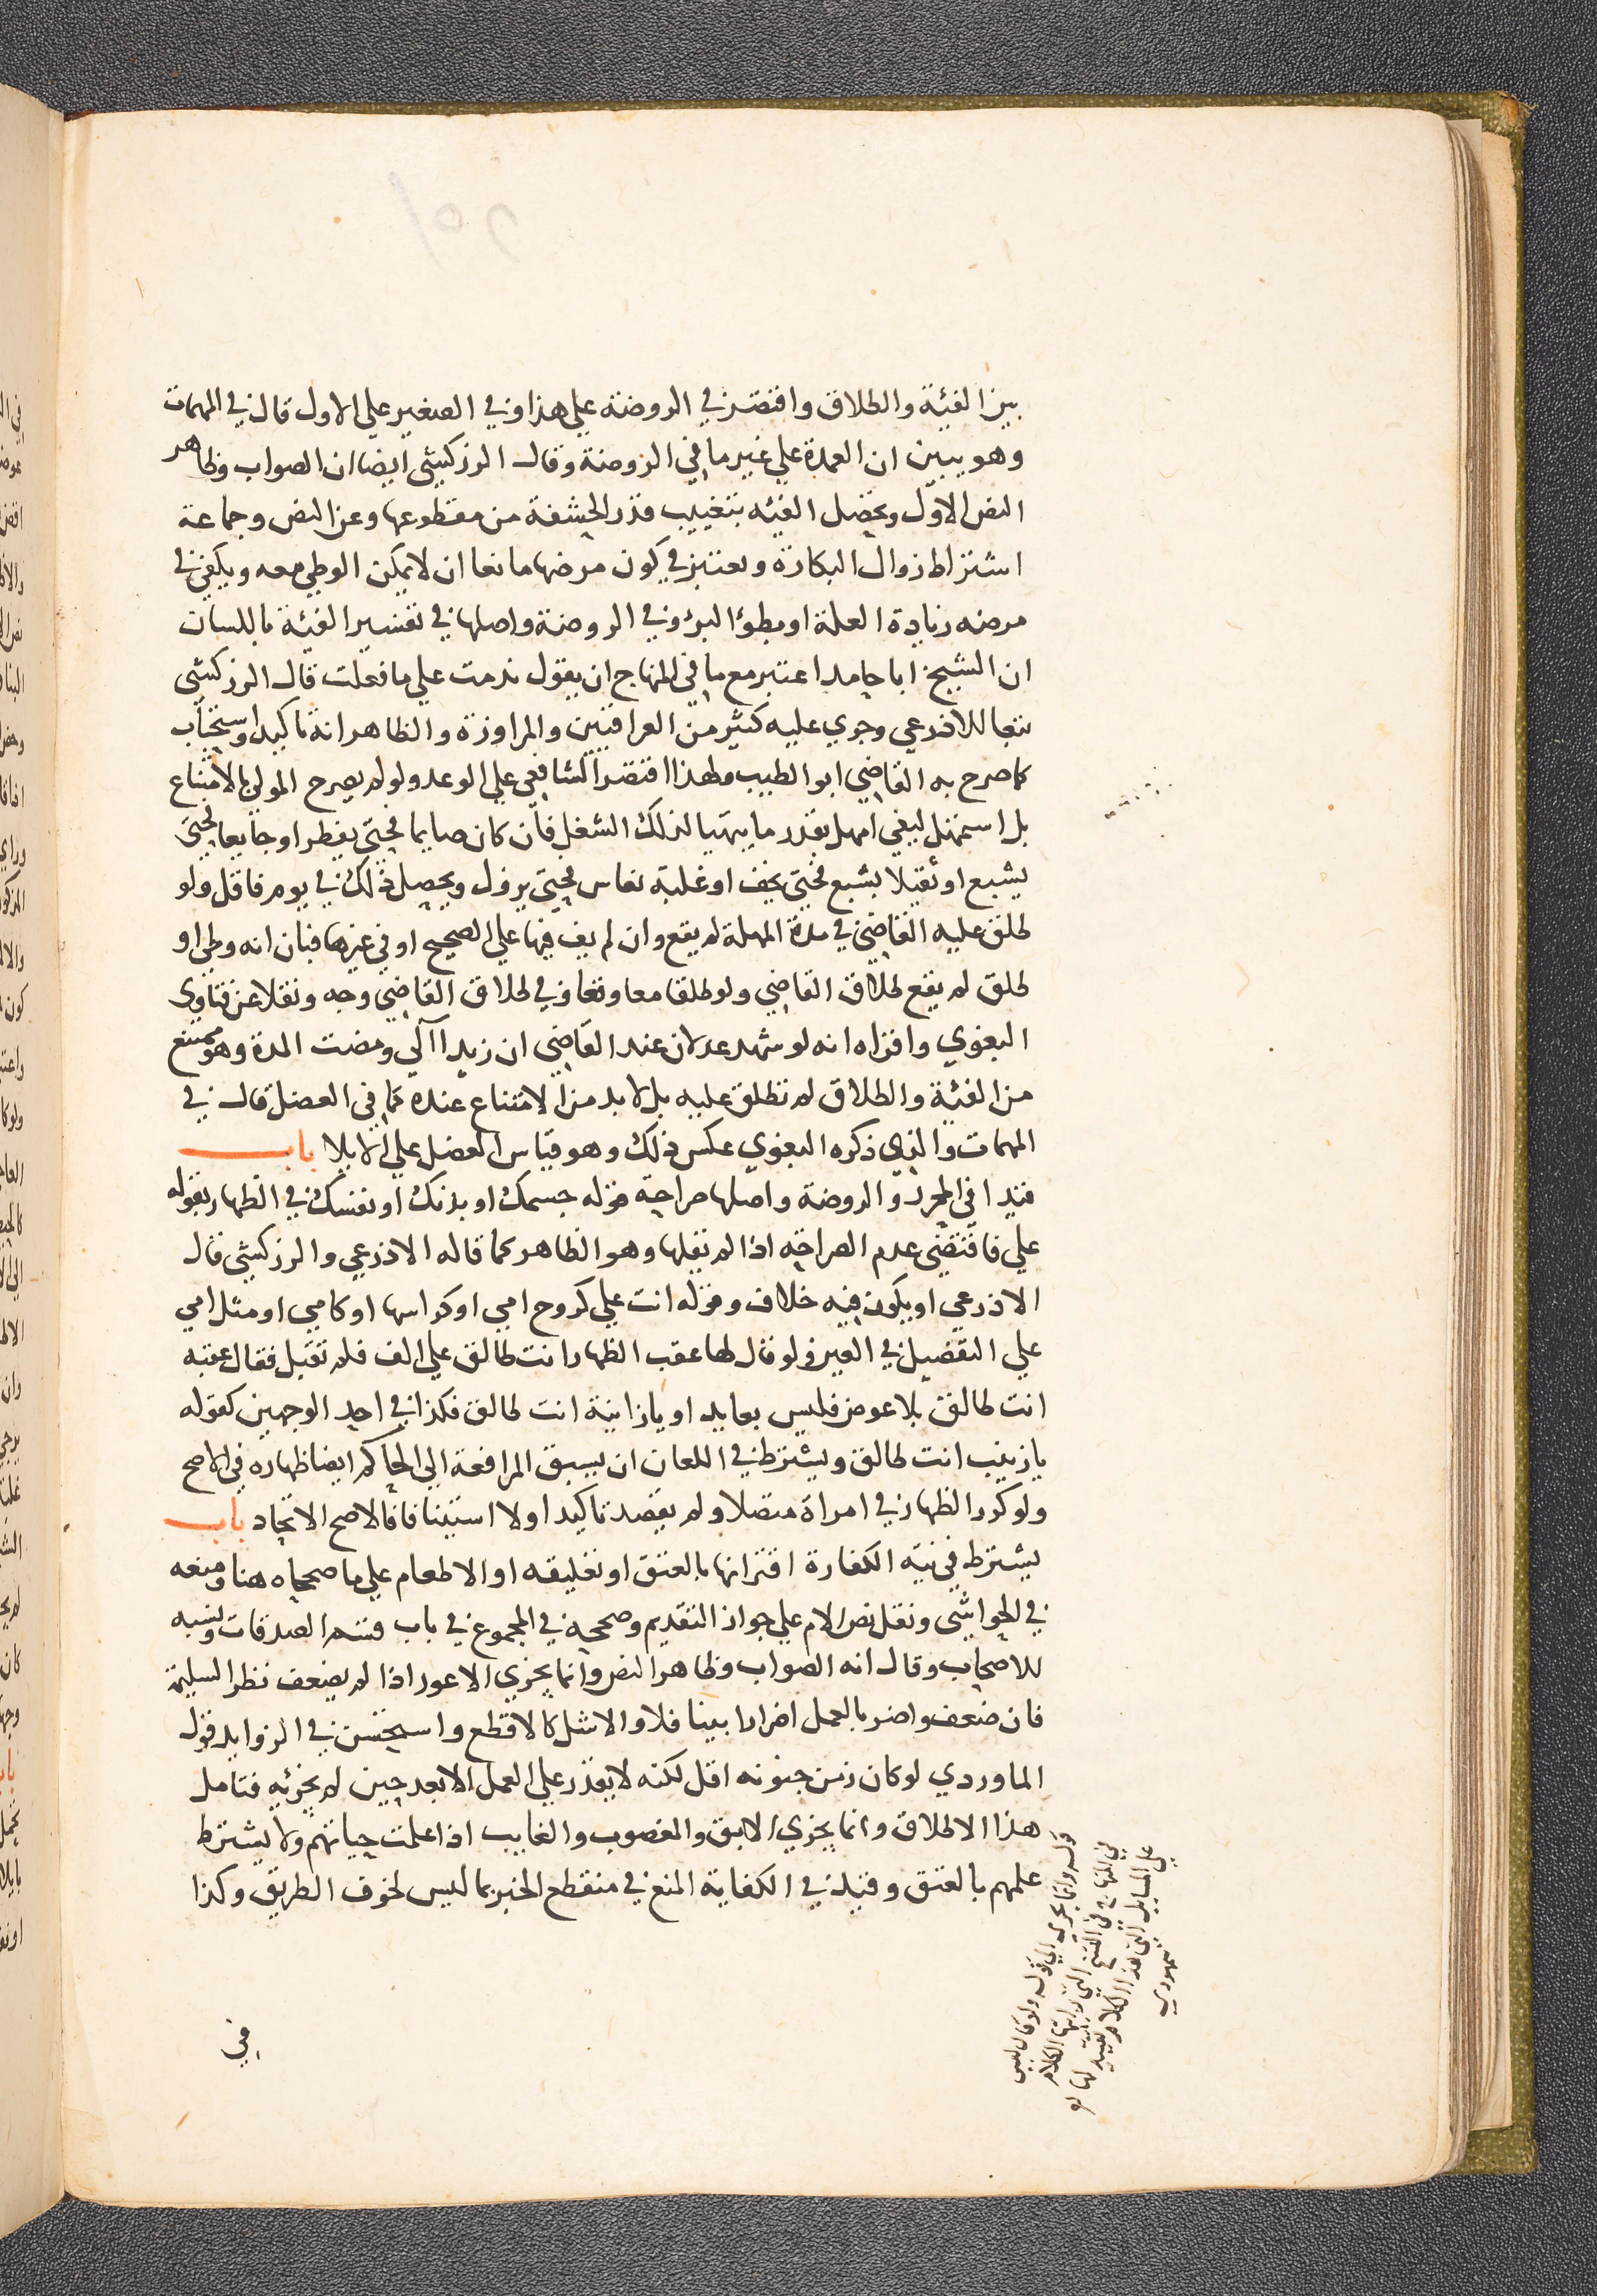 بين الفيئة والطلاق واقتصر في الروضة علي هذا وفي الصغير علي الاول قال في المهمات
وهو يبين ان العمدة علي غير ما في الروضة وقال الزركشي ايضا ان الصواب وظاهر
النص الاول ويحصل الفيئه بتغييب قدر الحشفة من مقطوعها وعن النص وجماعة
اشتراط زوال البكارة ويعتبر في كون مرضها مانعا ان لا يمكن الوطي معه ويكفي في
مرضه زيادة العلة او بطؤ البرؤ وفي الروضة واصلها في تفسير الفيئة باللسان
ان الشيخ ابا حامد اعتبر مع ما في المنهاج ان يقول ندمت علي ما فعلت قال الزركشي
تبعا للاذرعي وجري عليه كثير من العراقيين والمراوزة والظاهر انه تاكيد واستحباب
كما صرح به القاضي ابو الطيب ولهذا اقتصر الشافعي علي الوعد ولو لم يصرح المولي بالامتناع
بل استمهل ليفي امهل بقدر ما يتهيا لذلك الشغل فان كان صايما فحتي يفطر او جايعا فحتي
يشبع او ثقيلا بشبع فحتي يخف او غلبة نعاس فحتي يزول ويحصل ذلك في يوم فاقل ولو
طلق عليه القاضي في مدة المهلة لم يقع وان لم يف فيها علي الصحيح او في غيرها فبان انه وطي او
طلق لم يقع طلاق القاضي ولو طلقا معا وقعا وفي طلاق القاضي وجه ونقلا عن فتاوي
البغوي واقراه انه لو شهد عدلان عند القاضي ان زيدا آلي ومضت المدة وهو ممتنع
من الفئة والطلاق لم تطلق عليه بل لا بد من الامتناع عنده كما في العضل قال في
المهمات والذي ذكره البغوي عكس ذلك وهو قياس العضل علي الايلا باب
قيدا في المحرر والروضة واصلها صراحة قوله جسمك او بدنك او نفسك في الظهار بقوله
علي فاقتضي عدم الصراحه اذا لم يقلها وهو الظاهر كما قاله الاذرعي والزركشي قال
الاذرعي او يكون فيه خلاف وقوله انت علي كروح امي او كراسها او كامي او مثل امي
علي التفضيل في العين ولو قال لها عقب الظهار انت طالق علي الف فلم تقبل فقال عقبه
انت طالق بلا عوض فليس بعايد او يا زانية انت طالق فكذا في احد الوجهين كقوله
يا زينب انت طالق ويشترط في اللعان ان يسبق المرافعة الي الحاكم ايضا ظهاره في الاصح
ولو كرر الظهار في امراة متصلا ولم يقصد تاكيدا ولا استينافا فالاصح الاتحاد باب
يشترط في نيه الكفارة اقترانها بالعتق او تعليقه او الاطعام علي ما صححاه هنا ومنعه
في الحواشي ونقل نص الام علي جواز التقديم وصححه في المجموع في باب قسم الصدقات ونسبه
للاصحاب وقال انه الصواب وظاهر النص وانما يجزي الاعور اذا لم يضعف نظر السليمة
فان ضعف واضر بالعمل اضرارا بينا فلا والاشل كالاقطع واستحسن في الزوايد قول
الماوردي لو كان زمن جنونه اقل لكنه لا يقدر علي العمل الا بعد حين لم يجزئه فتامل
هذا الاطلاق وانما يجزي الابق والمغصوب والغايب اذا علمت حياتهم ولا يشترط
علمهم بالعتق وقيد في الكفاية المنع في منقطع الخبر بما ليس لخوف الطريق وكذا
في
قوله وانما يجزي الي قوله ولو كان ليس
في المنهاج في النسخ التي رايتها الكلام
علي المسايل التي هذا الكلام تقييد لها
سمهودي